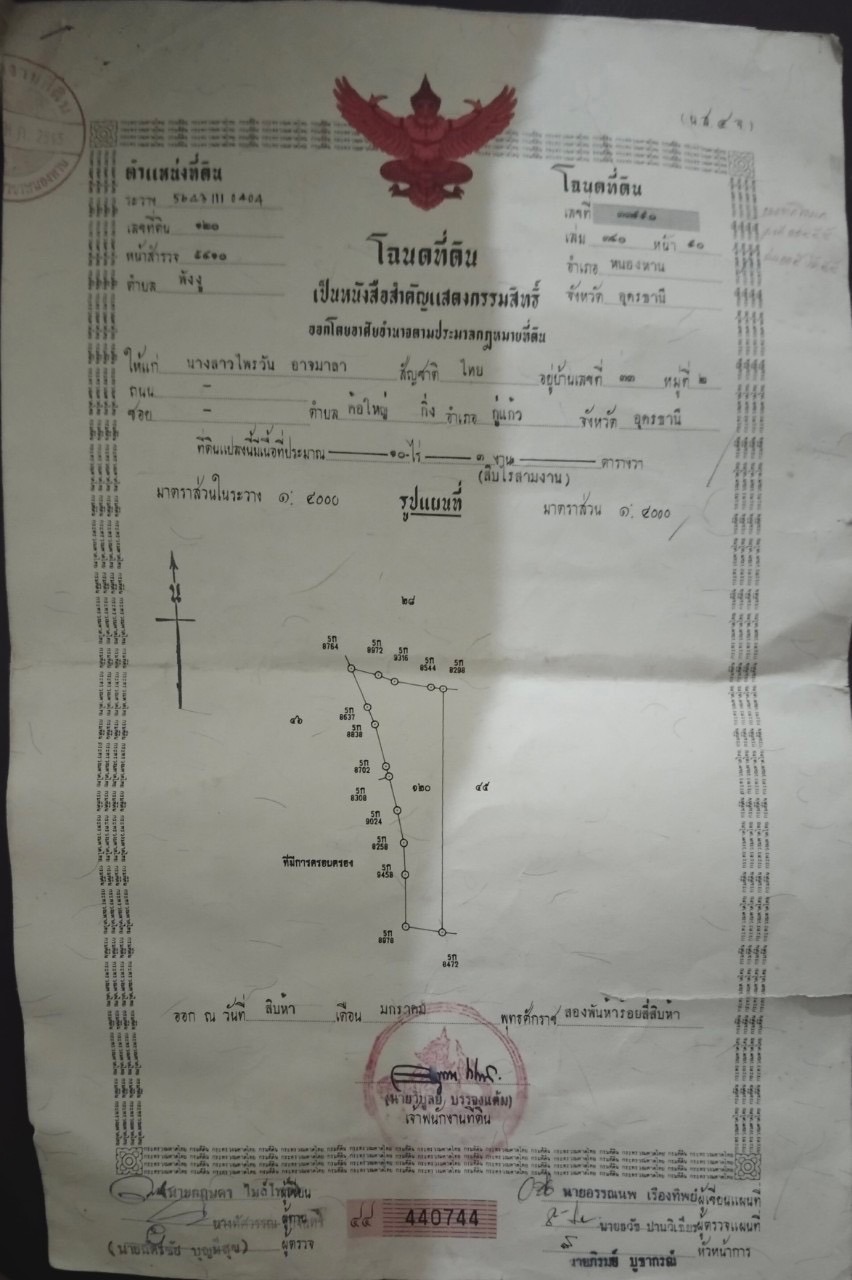 (น.ส. ๔ จ.)
ตำแหน่งที่ดิน
ระวาง 5643 III 0404
เลขที่ดิน ๑๒๐
หน้าสำรวจ ๕๔๑๐
ตำบล พังงู
โฉนดที่ดิน
เลขที่
เล่ม ๓๔๐ หน้า ๕๐
อำเภอ หนองหาน
จังหวัด อุดรธานี
โฉนดที่ดิน
เป็นหนังสือสำคัญแสดงกรรมสิทธิ์
ออกโดยอาศัยอำนาจตามประมวลกฎหมายที่ดิน
ให้แก่ นางสาวไพรวัน อาจมาลา สัญชาติ ไทย อยู่บ้านเลขที่ ๓๓ หมู่ที่ ๒
ถนน –
ซอย – ตำบล ค้อใหญ่ กิ่ง อำเภอ กู่แก้ว จังหวัด อุดรธานี
ที่ดินแปลงนี้มีเนื้อที่ประมาณ ๑๐ ไร่ ๓ งาน ตารางวา
(สิบไร่สามงาน)
มาตราส่วนในระวาง ๑: ๔๐๐๐ รูปแผนที่ มาตราส่วน ๑: ๔๐๐๐
น
๒๘
5ท 8764
5ท 8972
5ท 9316
5ท 8544
5ท 8298
๔๖
5ท 8637
5ท 8838
5ท 8702
5ท 8308
๑๒๐
๔๕
5ท 9024
5ท 8258
ที่มีการครอบครอง
5ท 9458
5ท 8978
5ท 8472
ออก ณ วันที่ สิบห้า เดือน มกราคม พุทธศักราช สองพันห้าร้อยสี่สิบห้า
(นายวิบูลย์ บรรจงแต้ม)
เจ้าพนักงานที่ดิน
ผู้เขียน
ผู้ทาน
ผู้ตรวจ
๔๔ 440744
นายอรรณนพ เรืองทิพย์ ผู้เขียนแผนที่
นายธวัช ปานวิเชียร ผู้ตรวจแผนที่
หัวหน้าการ